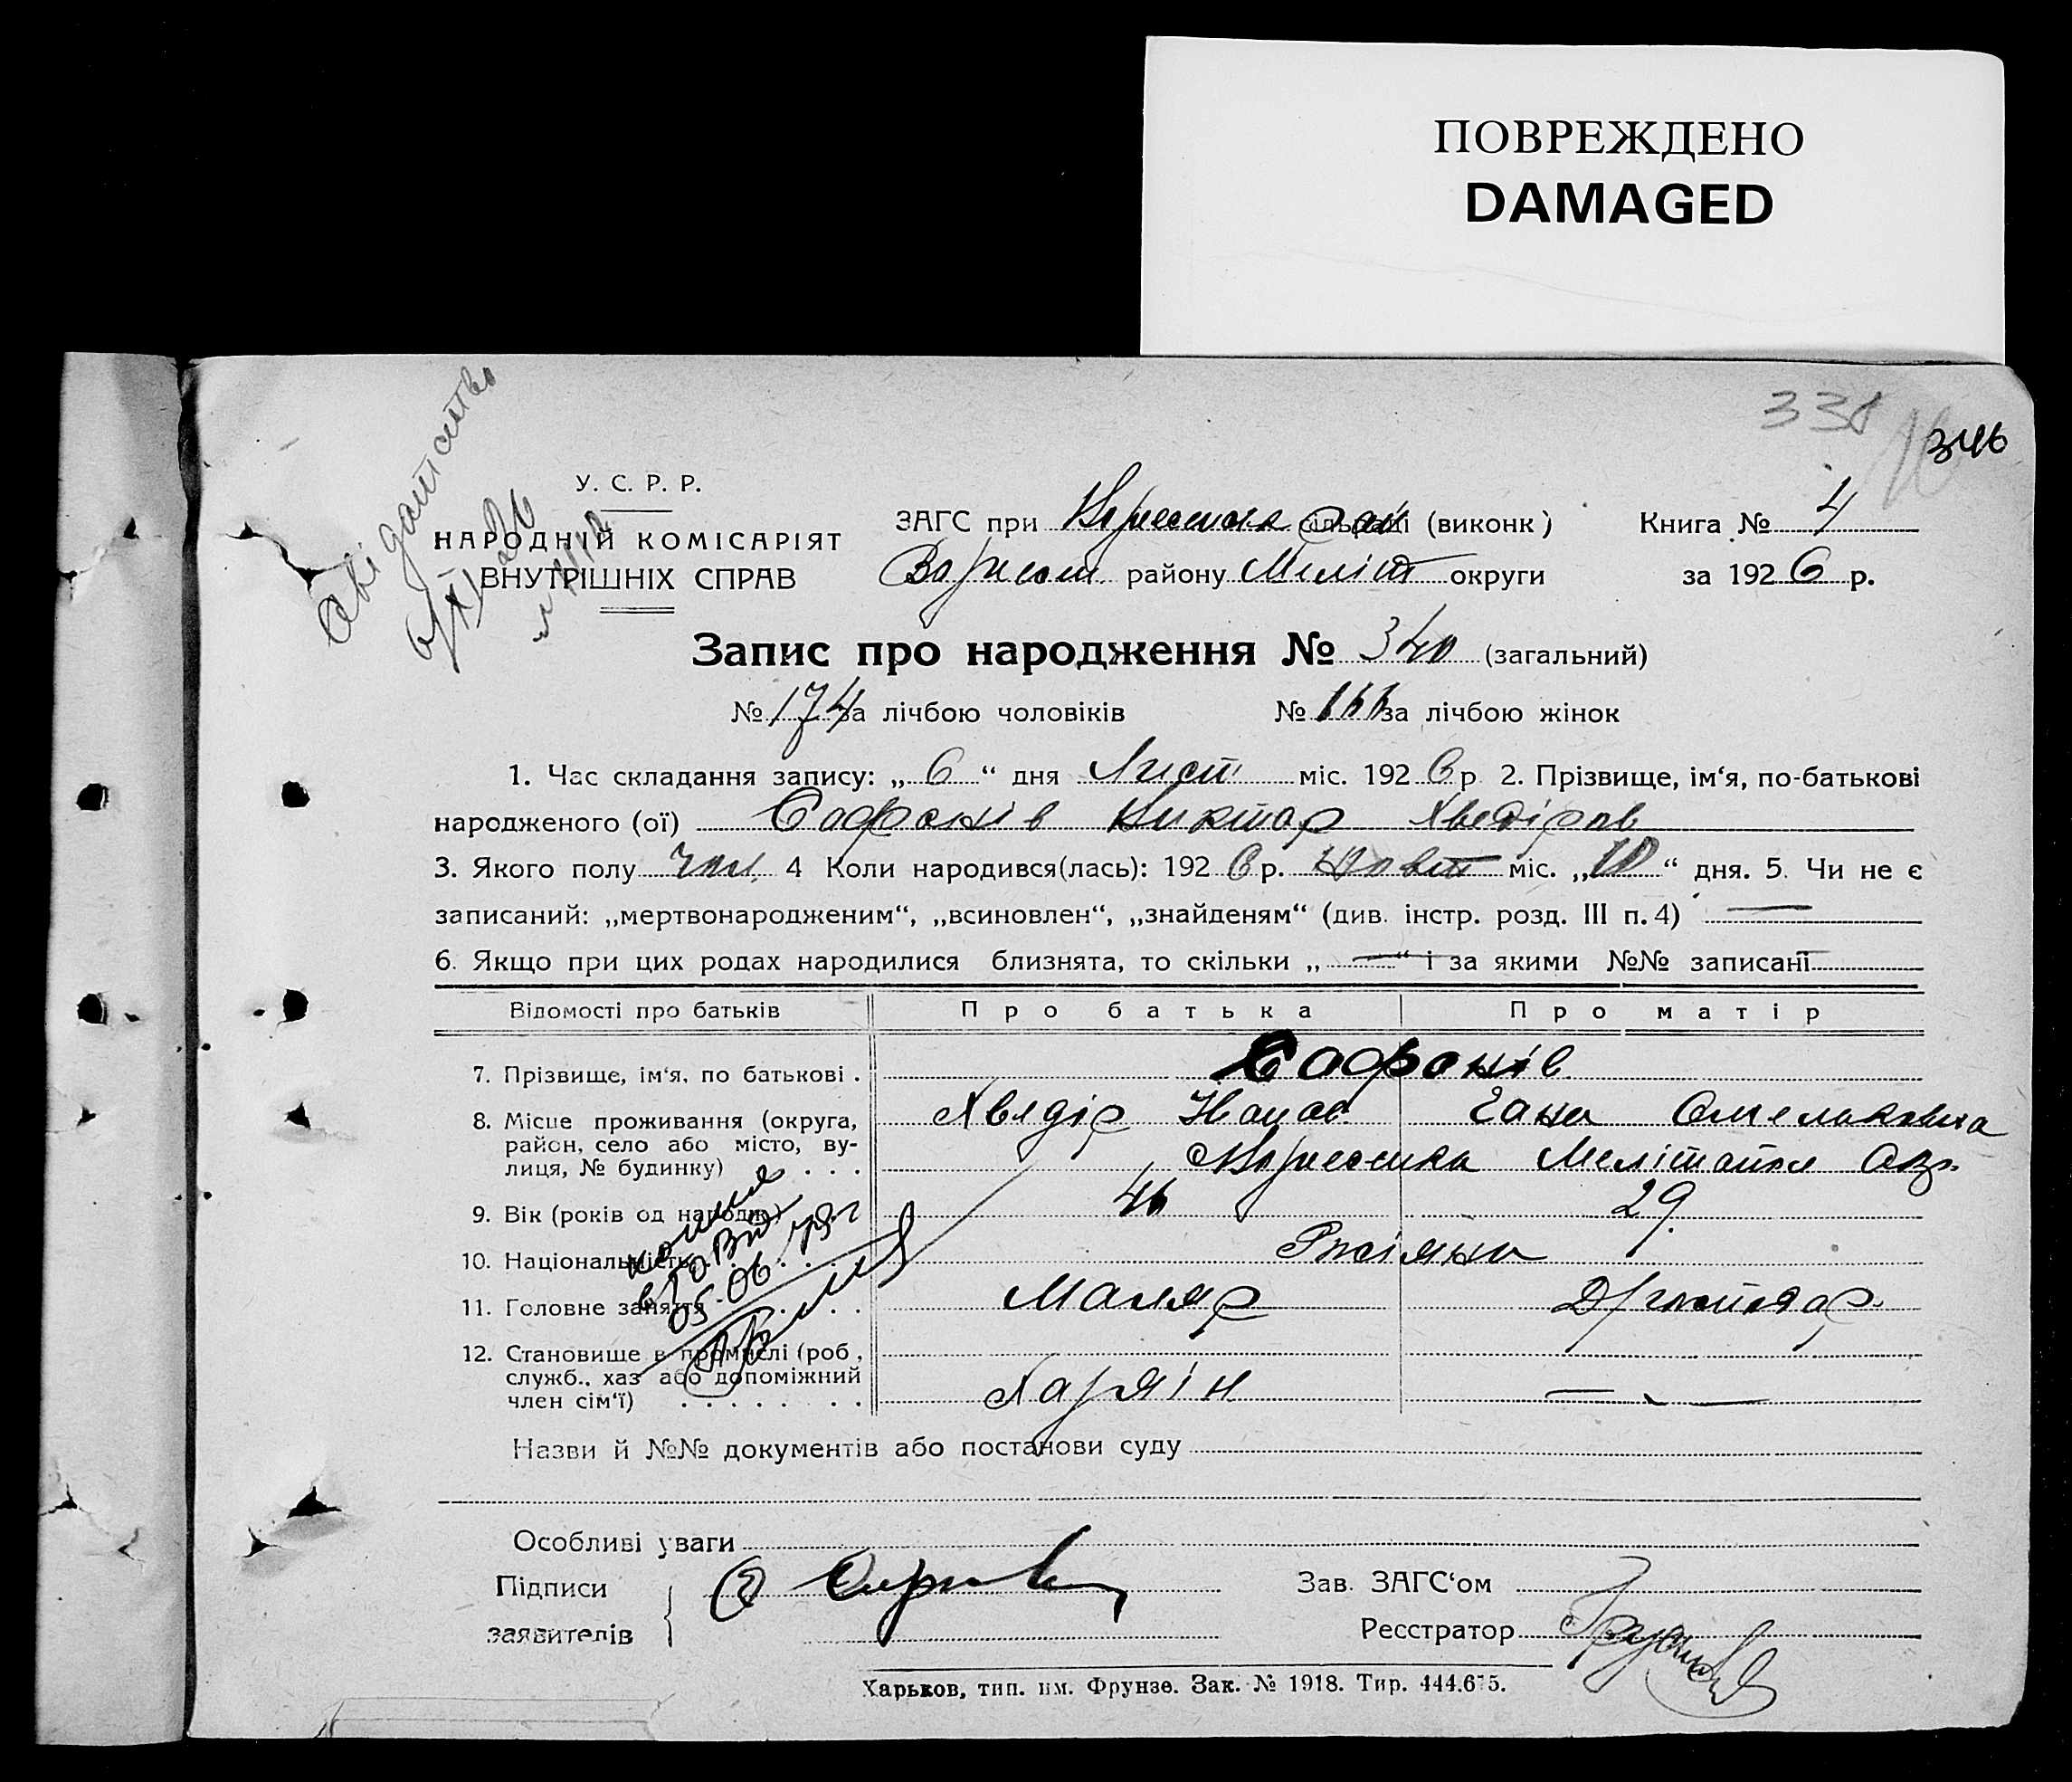 ПОВРЕЖДЕНО
DAMAGED
338
346
Свідоцтво
У. С. Р. Р.
НАРОДНІЙ КОМІСАРІЯТ
ВНУТРІШНІХ СПРАВ
ЗАГС при сільраді (виконк)
Книга № 4
району Меліт округи
за 1926 р.
Запис про народження № 340 (загальний)
№ 174 за лічбою чоловіків
№ 166 за лічбою жінок
1. Час складання запису: „ 6 “ дня Лист міс. 1926 р 2. Прізвище, ім‘я, по-батькові
народженого (ої) Сафонів Виктор Хведіров
3. Якого полу чол. 4 Коли народився(лась): 1926 р. Жовт міс. „ 10 “ дня. 5. Чи не є
записаний: „мертвонародженим“, „всиновлен“, „знайденям“ (див. інстр. розд. III п. 4) —
6. Якщо при цих родах народилися близнята, то скільки „ — “ і за якими №№ записані
Відомості про батьків
Про батька
Про матір
7. Прізвище, ім‘я, по батькові .
Сафонів
8. Місце проживання (округа, район, село або місто, вулиця, № будинку) . . .
Хведір
Гана Омельковна
Мелітопол
9. Вік (років од народж.)
46
29
10. Національність
Росіяни
11. Головне заняття
Маляр
12. Становище в промислі (роб, служб., хаз або допоміжний член сім‘ї)
— — —
копия
05-06
Назви й №№ документів або постанови суду
Особливі уваги
Підписи
заявителів
Зав. ЗАГС‘ом
Реєстратор
Харьков, тип. им. Фрунзе. Зак. № 1918. Тир. 444.675.